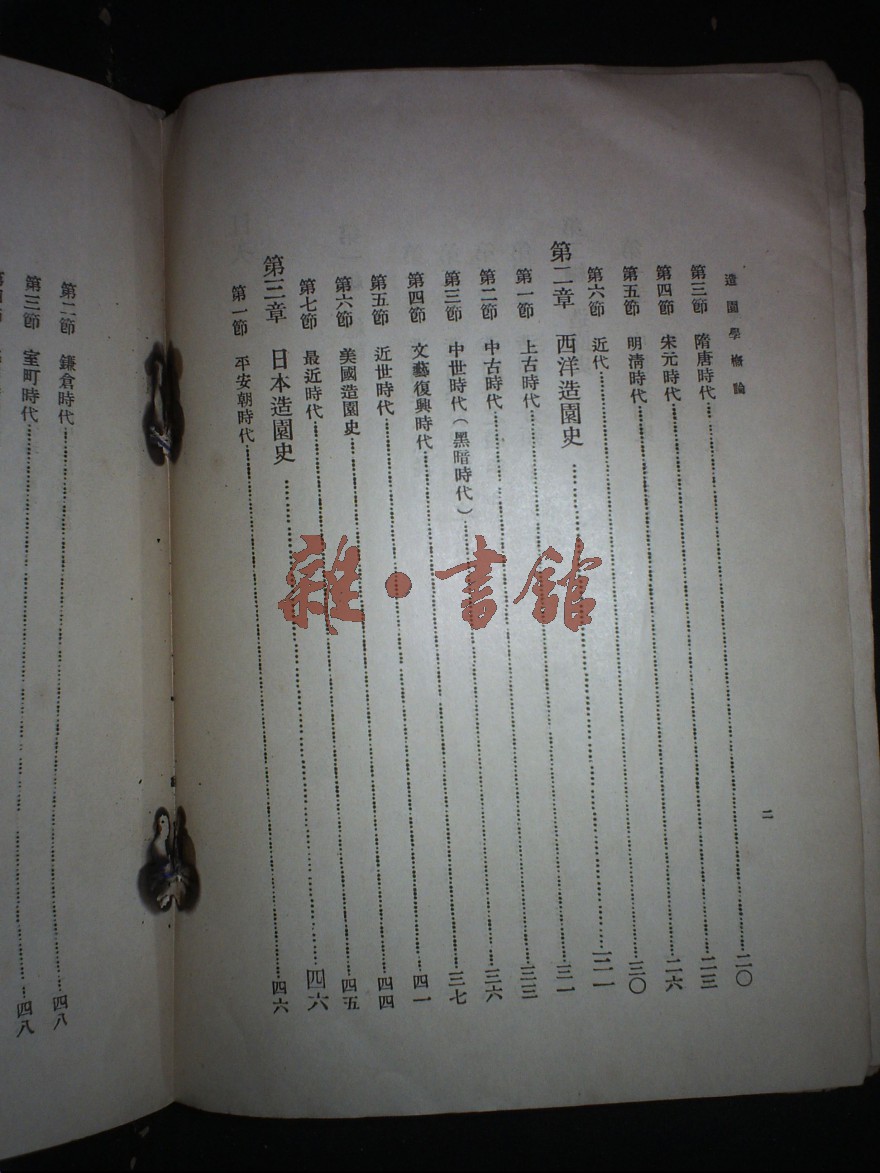 造園學概論
二
第三節 隋唐時代……二〇
第四節 宋元時代……二三
第五節 明清時代……二六
第六節 近代……三〇
第二章 西洋造園史……三一
第一節 上古時代……三一
第二節 中古時代……三三
第三節 中世時代(黑暗時代)……三六
第四節 文藝復興時代……三七
第五節 近世時代……四一
第六節 美國造園史……四四
第七節 最近時代……四五
第三章 日本造園史……四六
第一節 平安朝時代……四六
第二節 鎌倉時代……四八
第三節 室町時代……四八
雜·書館